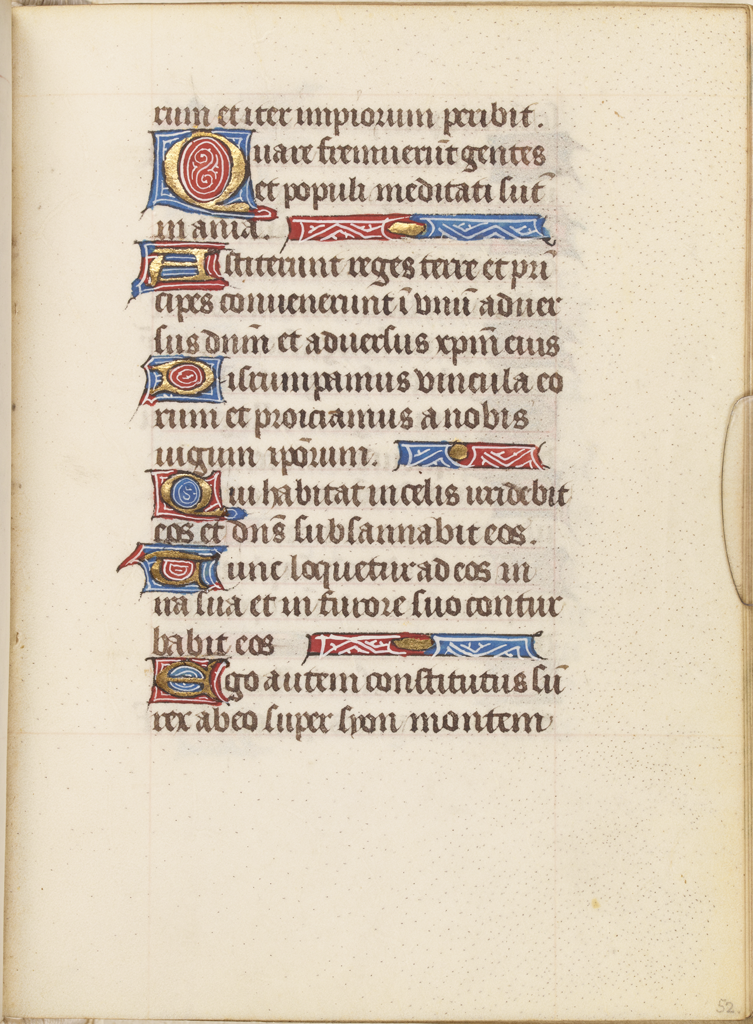 rum et iter impiorum peribit.
Quare fremuerūt gentes
et populi meditati sūt
inania.
Astiterunt reges terre et prī
cipes convenerunt ī vnū aduer
sus dn̄m et aduersus xpm̄ eius
Disrumpamus vincula eo
rum et proiciamus a nobis
iugum ipōrum.
Qui habitat in celis irridebit
eos et dn̄s subsannabit eos.
Tunc loquetur ad eos in
ira sua et in furore suo contur
babit eos
Ego autem constitutus sū
rex ab eo super syon montem
52.